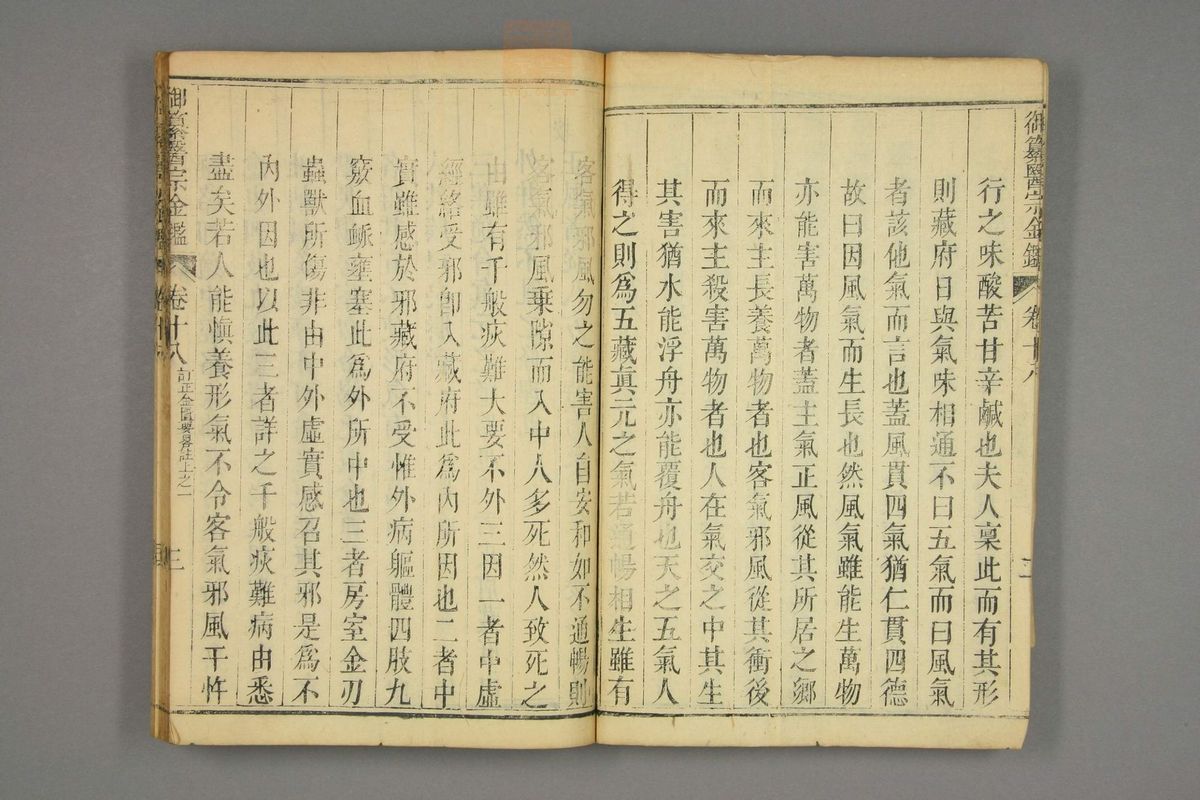 御纂醫宗金鑑
卷十八
二
行之味酸苦甘辛鹹也夫人稟此而有其形
則藏府日與氣味相通不曰五氣而曰風氣
者該他氣而言也蓋風貫四氣猶仁貫四德
故曰因風氣而生長也然風氣雖能生萬物
亦能害萬物者蓋主氣正風從其所居之鄉
而來主長養萬物者也客氣邪風從其衝後
而來主殺害萬物者也人在氣交之中其生
其害猶水能浮舟亦能覆舟也天之五氣人
得之則爲五藏眞元之氣若通暢相生雖有
客氣邪風勿之能害人自安和如不通暢則
客氣邪風乗隙而入中人多死然人致死之
由雖有千般疢難大要不外三因一者中虛
經絡受邪卽入藏府此爲內所因也二者中
實雖感於邪藏府不受惟外病軀體四肢九
竅血脈壅塞此爲外所中也三者房室金刃
蟲獸所傷非由中外虛實感召其邪是爲不
內外因也以此三者詳之千般疢難病由悉
盡矣若人能愼養形氣不令客氣邪風干忤
御纂醫宗金鑑
卷十八
訂正金匱要畧註上之一
三